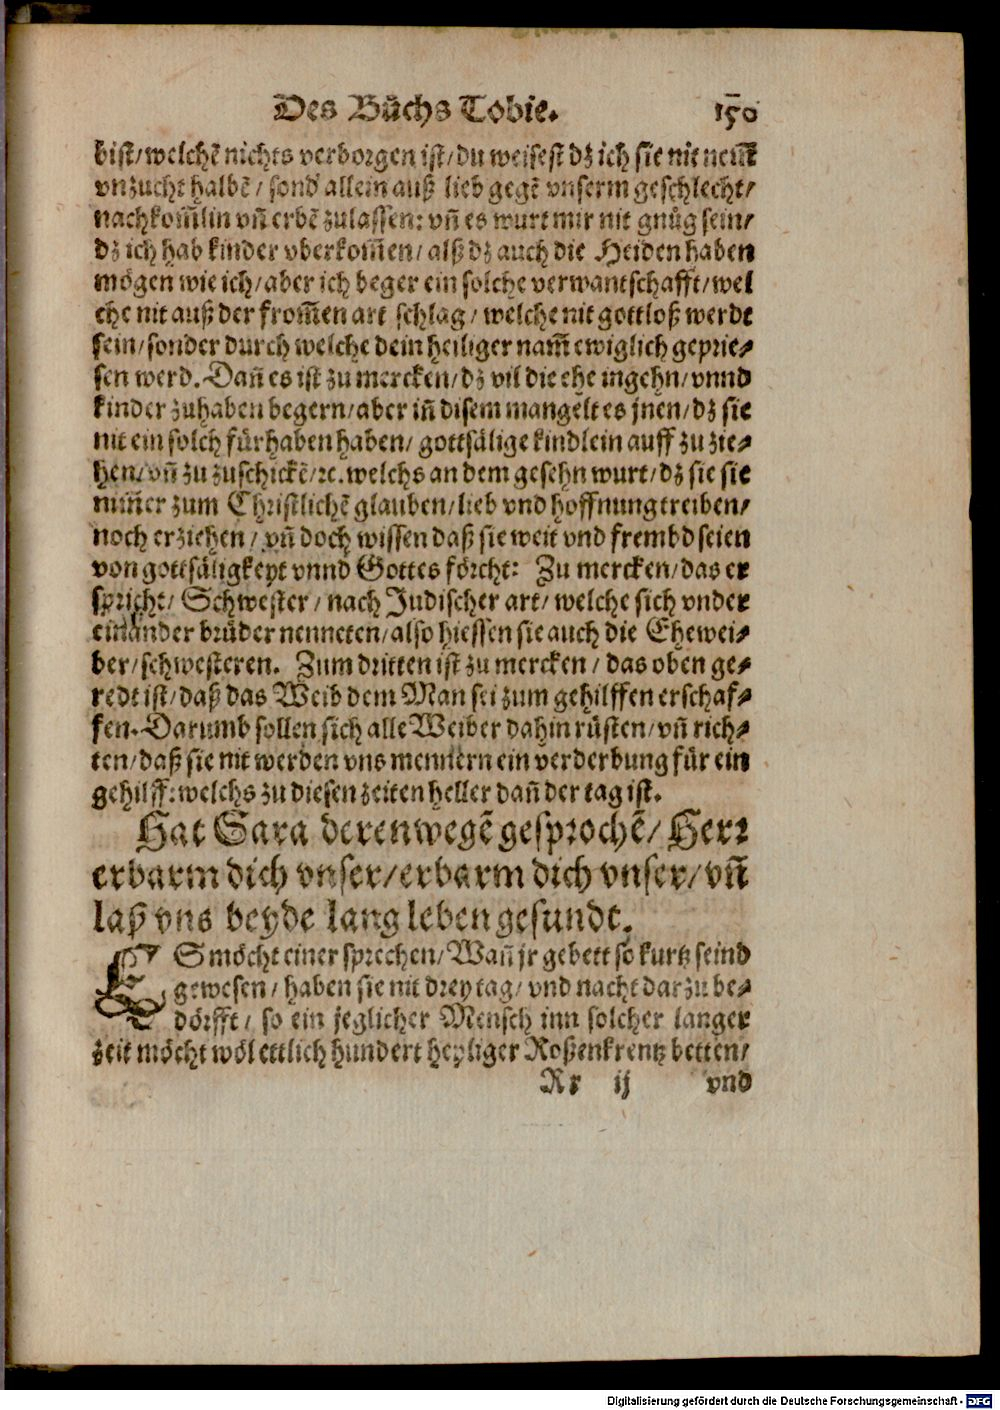 Des Bůchs Tobie. 150
bist/welchẽ nichts verborgen ist/du weisest dz ich sie nit nem̃
vnzucht halbẽ/ sond allein auß lieb gegẽ vnserm geschlecht/
nachkom̃lin vñ erbẽ zulassen: vñ es wurt mir nit gnůg sein/
dz ich hab kinder vberkom̃en/ alß dz auch die Heiden haben
mögen wie ich/aber ich beger ein solche verwantschafft/wel
che nit auß der from̃en art schlag/ welche nit gottloß werdt
sein/sonder durch welche dein heiliger nam̃ ewiglich geprie⸗
sen werd. Dañ es ist zu mercken/dz vil die ehe ingehn/vnnd
kinder zuhaben begern/aber iñ disem mangelt es jnen/dz sie
nit ein solch fürhaben haben/ gottsälige kindlein auff zu zie⸗
hen/vñ zu zuschickẽ/ꝛc. welchs an dem gesehn wurt/dz sie sie
nim̃er zum Christlichẽ glauben/lieb vnd hoffnung treiben/
noch erziehen/ vñ doch wissen daß sie weit vnd frembd seien
von gottsäligkeyt vnnd Gottes förcht: Zu mercken/das er
spricht/ Schwester/ nach Judischer art/ welche sich vnder
einander brüder nenneten/also hiessen sie auch die Ehewei⸗
ber/schwesteren. Zum dritten ist zu mercken/ das oben ge⸗
redt ist/daß das Weib dem Man sei zum gehilffen erschaf⸗
fen. Darumb sollen sich alle Weiber dahin rüsten/vñ rich⸗
ten/daß sie nit werden vns mennern ein verderbung für ein
gehilff: welchs zu diesen zeiten heller dañ der tag ist.
Hat Sara derenwegẽ gesprochẽ/ Herꝛ
erbarm dich vnser/erbarm dich vnser/vñ
laß vns beyde lang leben gesundt.
ES möcht einer sprechen/Wañ jr gebett so kurtz seind
gewesen/ haben sie nit drey tag/ vnd nacht darzu be⸗
dörfft/ so ein jeglicher Mensch inn solcher langer
zeit möcht wöl ettlich hundert heyliger Roßenkrentz betten/
Rr ij vnd
Digitalisierung gefördert durch die Deutsche Forschungsgemeinschaft - DFG